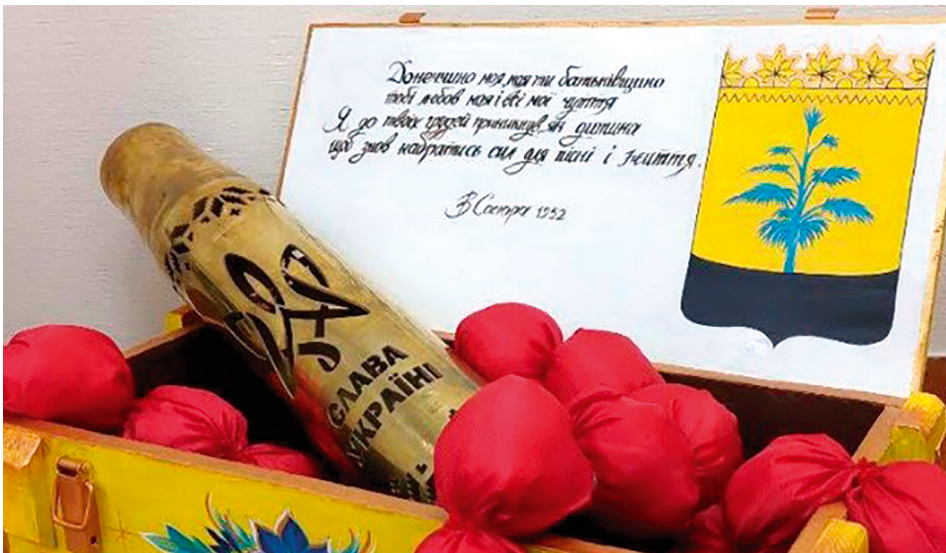 Донеччино моя, моя ти батьківщино
тобі любов моя і всі мої чуття
Я до твоїх грудей приникнув як дитина
щоб знов набратись сил для пісні і життя.
В Сосюра 1952
СЛАВА
УКРАЇНІ